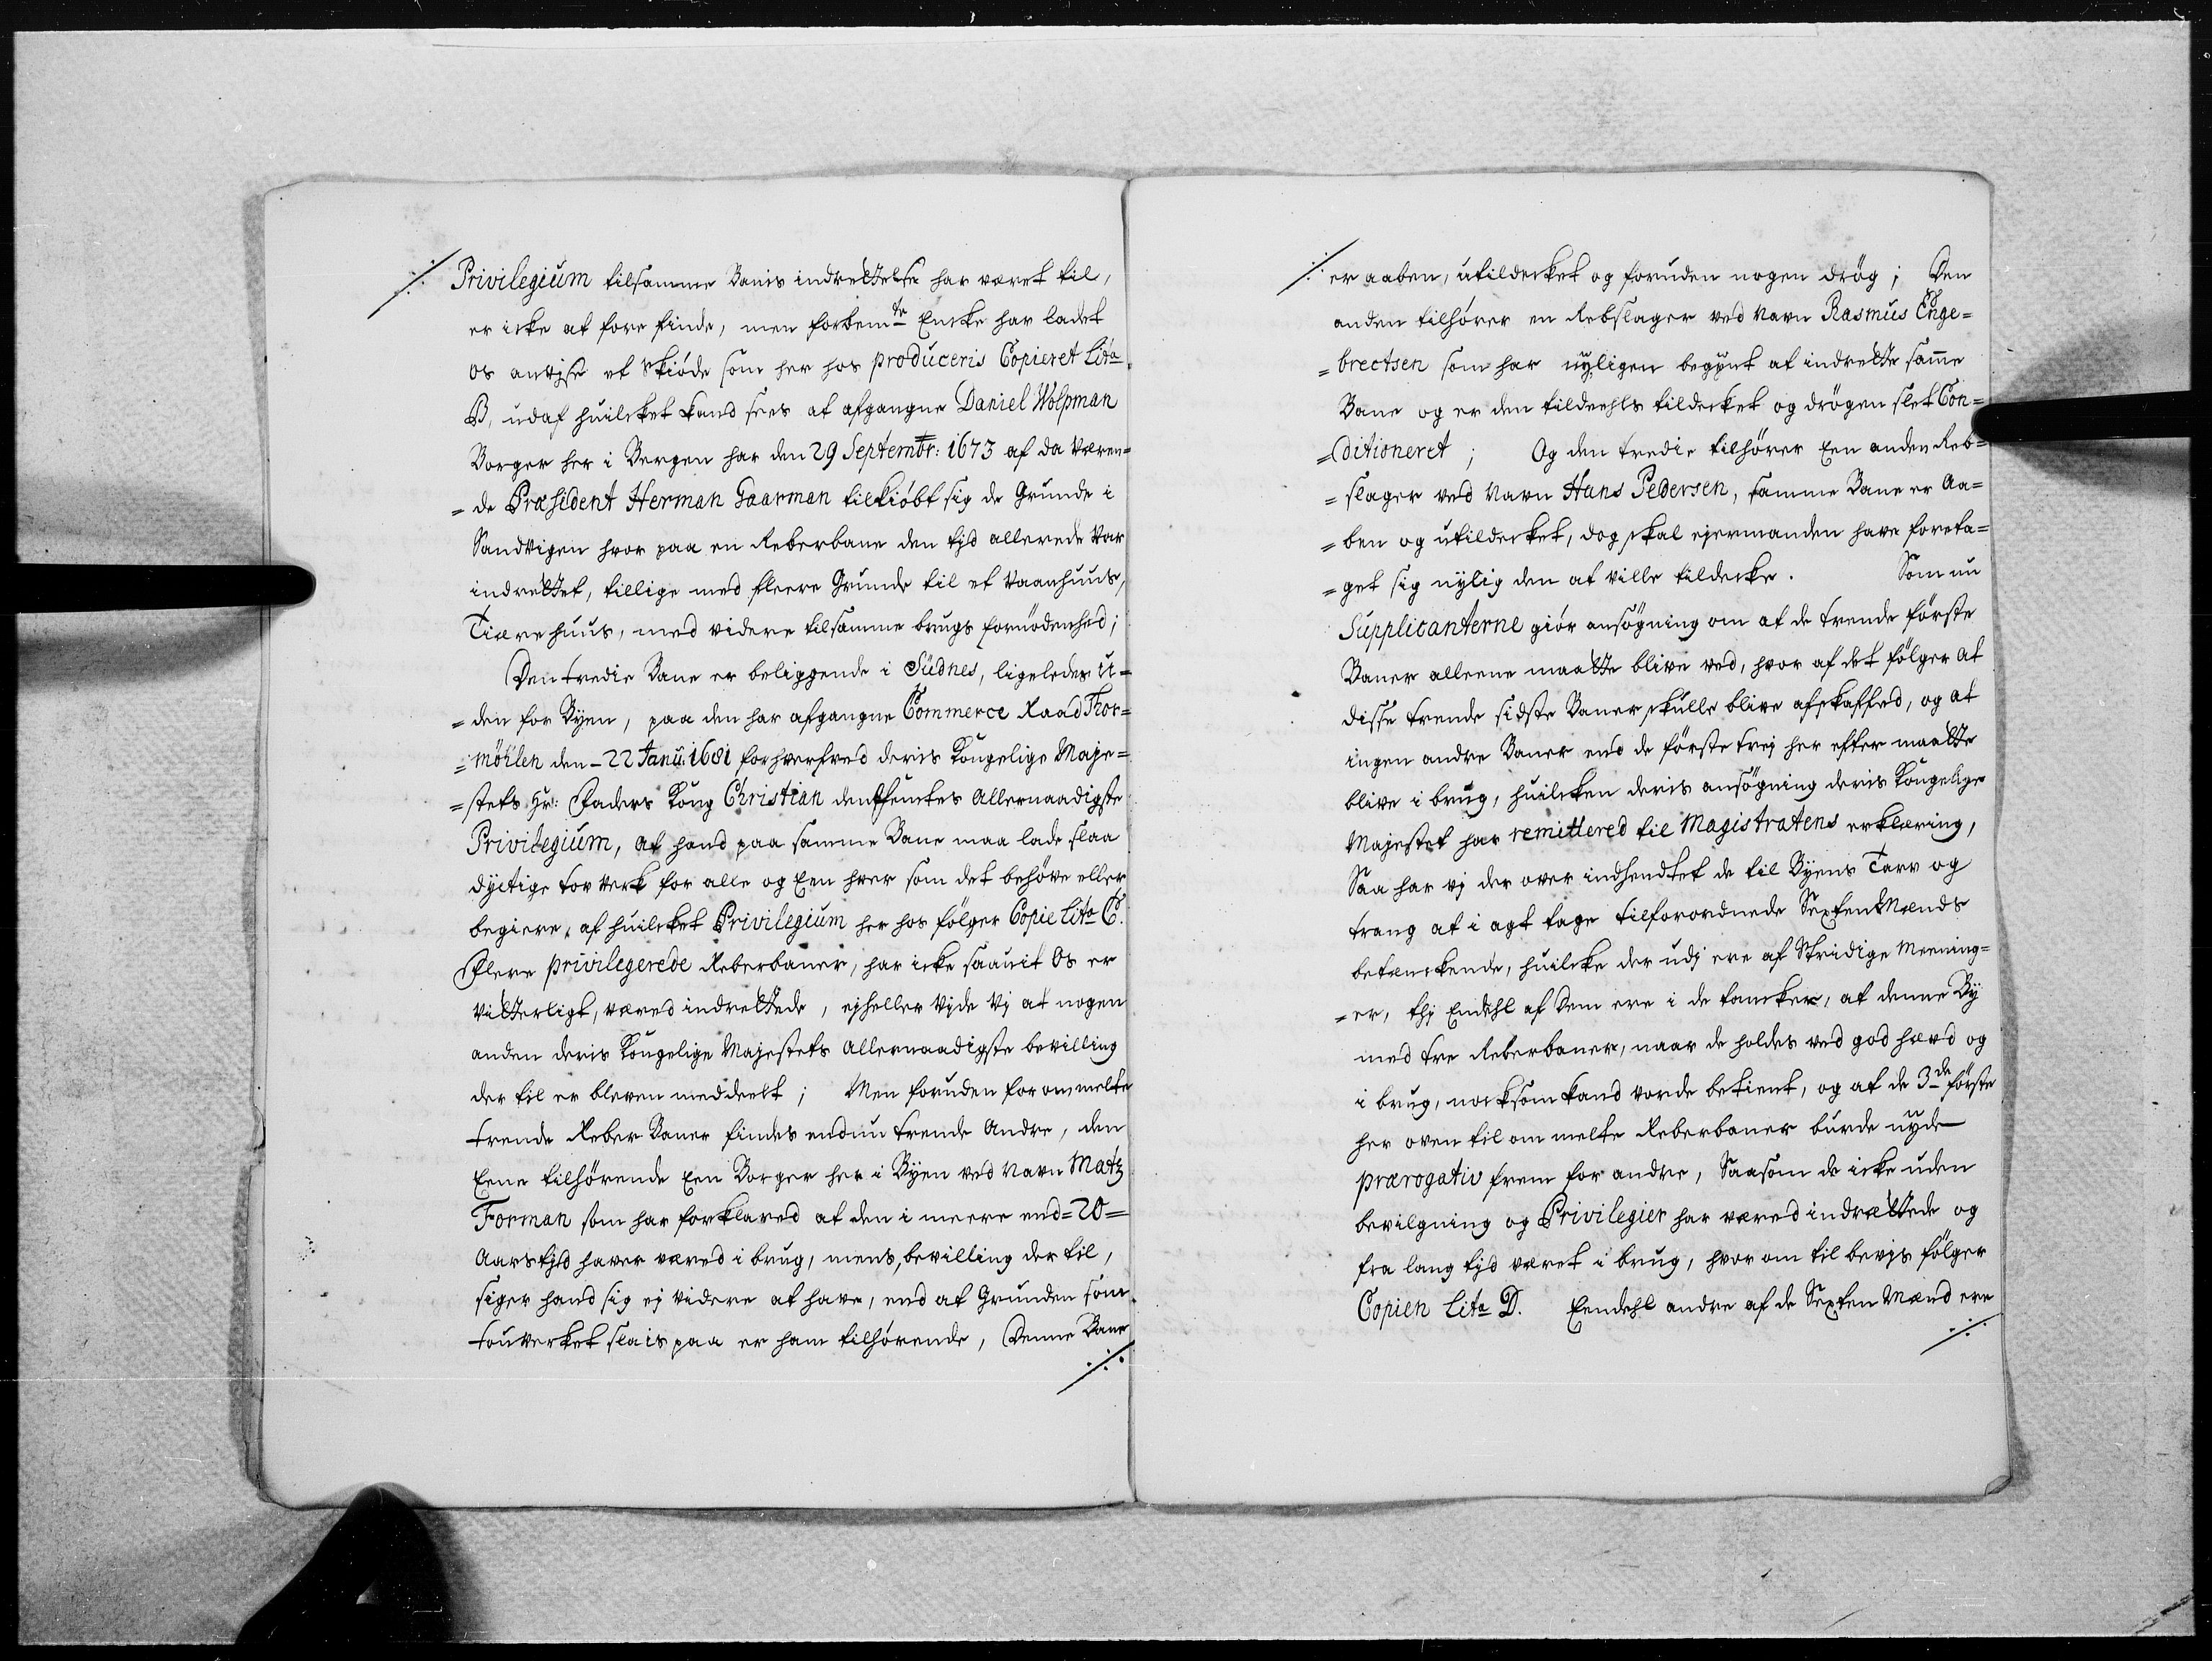 Privilegium til samme Banis indrettelse har været til,
er icke at fore finde, men forbemte Encke har ladet
os antvise et Skiøde som her hos produceris Copieret Lita
B, udaf huilcket kand sees at afgangne Daniel Wolpman
Borger her i Bergen har den 29 Septembr: 1673 af da Væren=
=de Præsident Herman Gaarman tilkiøbt sig de Grunde i
Sandvigen hvor paa en Reberbane den tjd allerede var
indrettet, tillige med fleere Grunde til et Vaanhuus,
Tiære huus, med videre til samme brugs fornødenhed;
Den tredie Bane er beliggende i Südnes, ligeledes u=
=den for Byen, paa den har afgangne Commerce Raad Thor=
=möhlen den - 22 Janu: 1681 forhverfved deris Kongelige Maje=
=stets Hr: Faders Kong Christian den Femtes Allernaadigste
Privilegium, at hand paa samme Bane maa lade slaa
dygtige tov verk for alle og Een hver som det behøve eller
begiere, af huilcket Privilegium her hos følger Copie Lita C.
Flere privilegerede Reberbaner, har icke saavit Os er
vitterligt, væred indrettede, ejheller vide Vj at nogen
anden deris Kongelige Majestets Allernaadigste bevilling
der til er bleven meddeelt; Men foruden for ommelte
trende Reber Baner findes endnu trende Andre, den
Eene tilhørende Een Borger her i Byen ved Navn Matz
Forman som har forklared at den i meere end =20=
Aars tjd haver væred i brug, mens, bevilling der til,
siger hand sig ej videre at have, end at Grunden som
touverket slais paa er ham tilhørende, Denne Bane
er aaben, utildecket og foruden nogen drög; Den
anden tilhører en Rebslager ved Navn Rasmus Enge=
=brectsen som har nyligen begynt at indrette samme
Bane og er den tildeehls tildecket og drögen slet Con=
=ditioneret; Og den tredie tilhører Een anden Reb=
=slager ved Navn Hans Pedersen, samme Bane er Aa=
=ben og utildecket, dog skal ejermanden have foreta=
=get sig nylig den at ville tildecke. Som nu
Supplicanterne giør ansøgning om at de trende første
Baner alleene maatte blive ved, hvor af det følger at
disse trende sidste Baner skulle blive afskaffed, og at
ingen andre Baner end de første trej her efter maatte
blive i brug, huilcken deris ansøgning deris Kongelige
Majestet har remittered til Magistratens erklæring,
Saa har vj der over indhendtet de til Byens Tarv og
trang at i agt tage tilforordnede Sexten Mænds
betænckende, huilcke der udj ere af Stridige Meening=
=er, thj Endehl af Dem ere i de tancker, at denne By
med tre Reberbaner, naar de holdes ved god hævd og
i brug, nocksom kand vorde betient, og at de 3de første
her oven til om melte Reberbaner burde nyde
prærogativ frem for andre, Saasom de icke uden
bevilgning og Privilegier har væred indrættede og
fra lang tjd været i brug, hvor om til bevjs følger
Copien Lita D. Eendehl andre af de Sexten Mænd ere